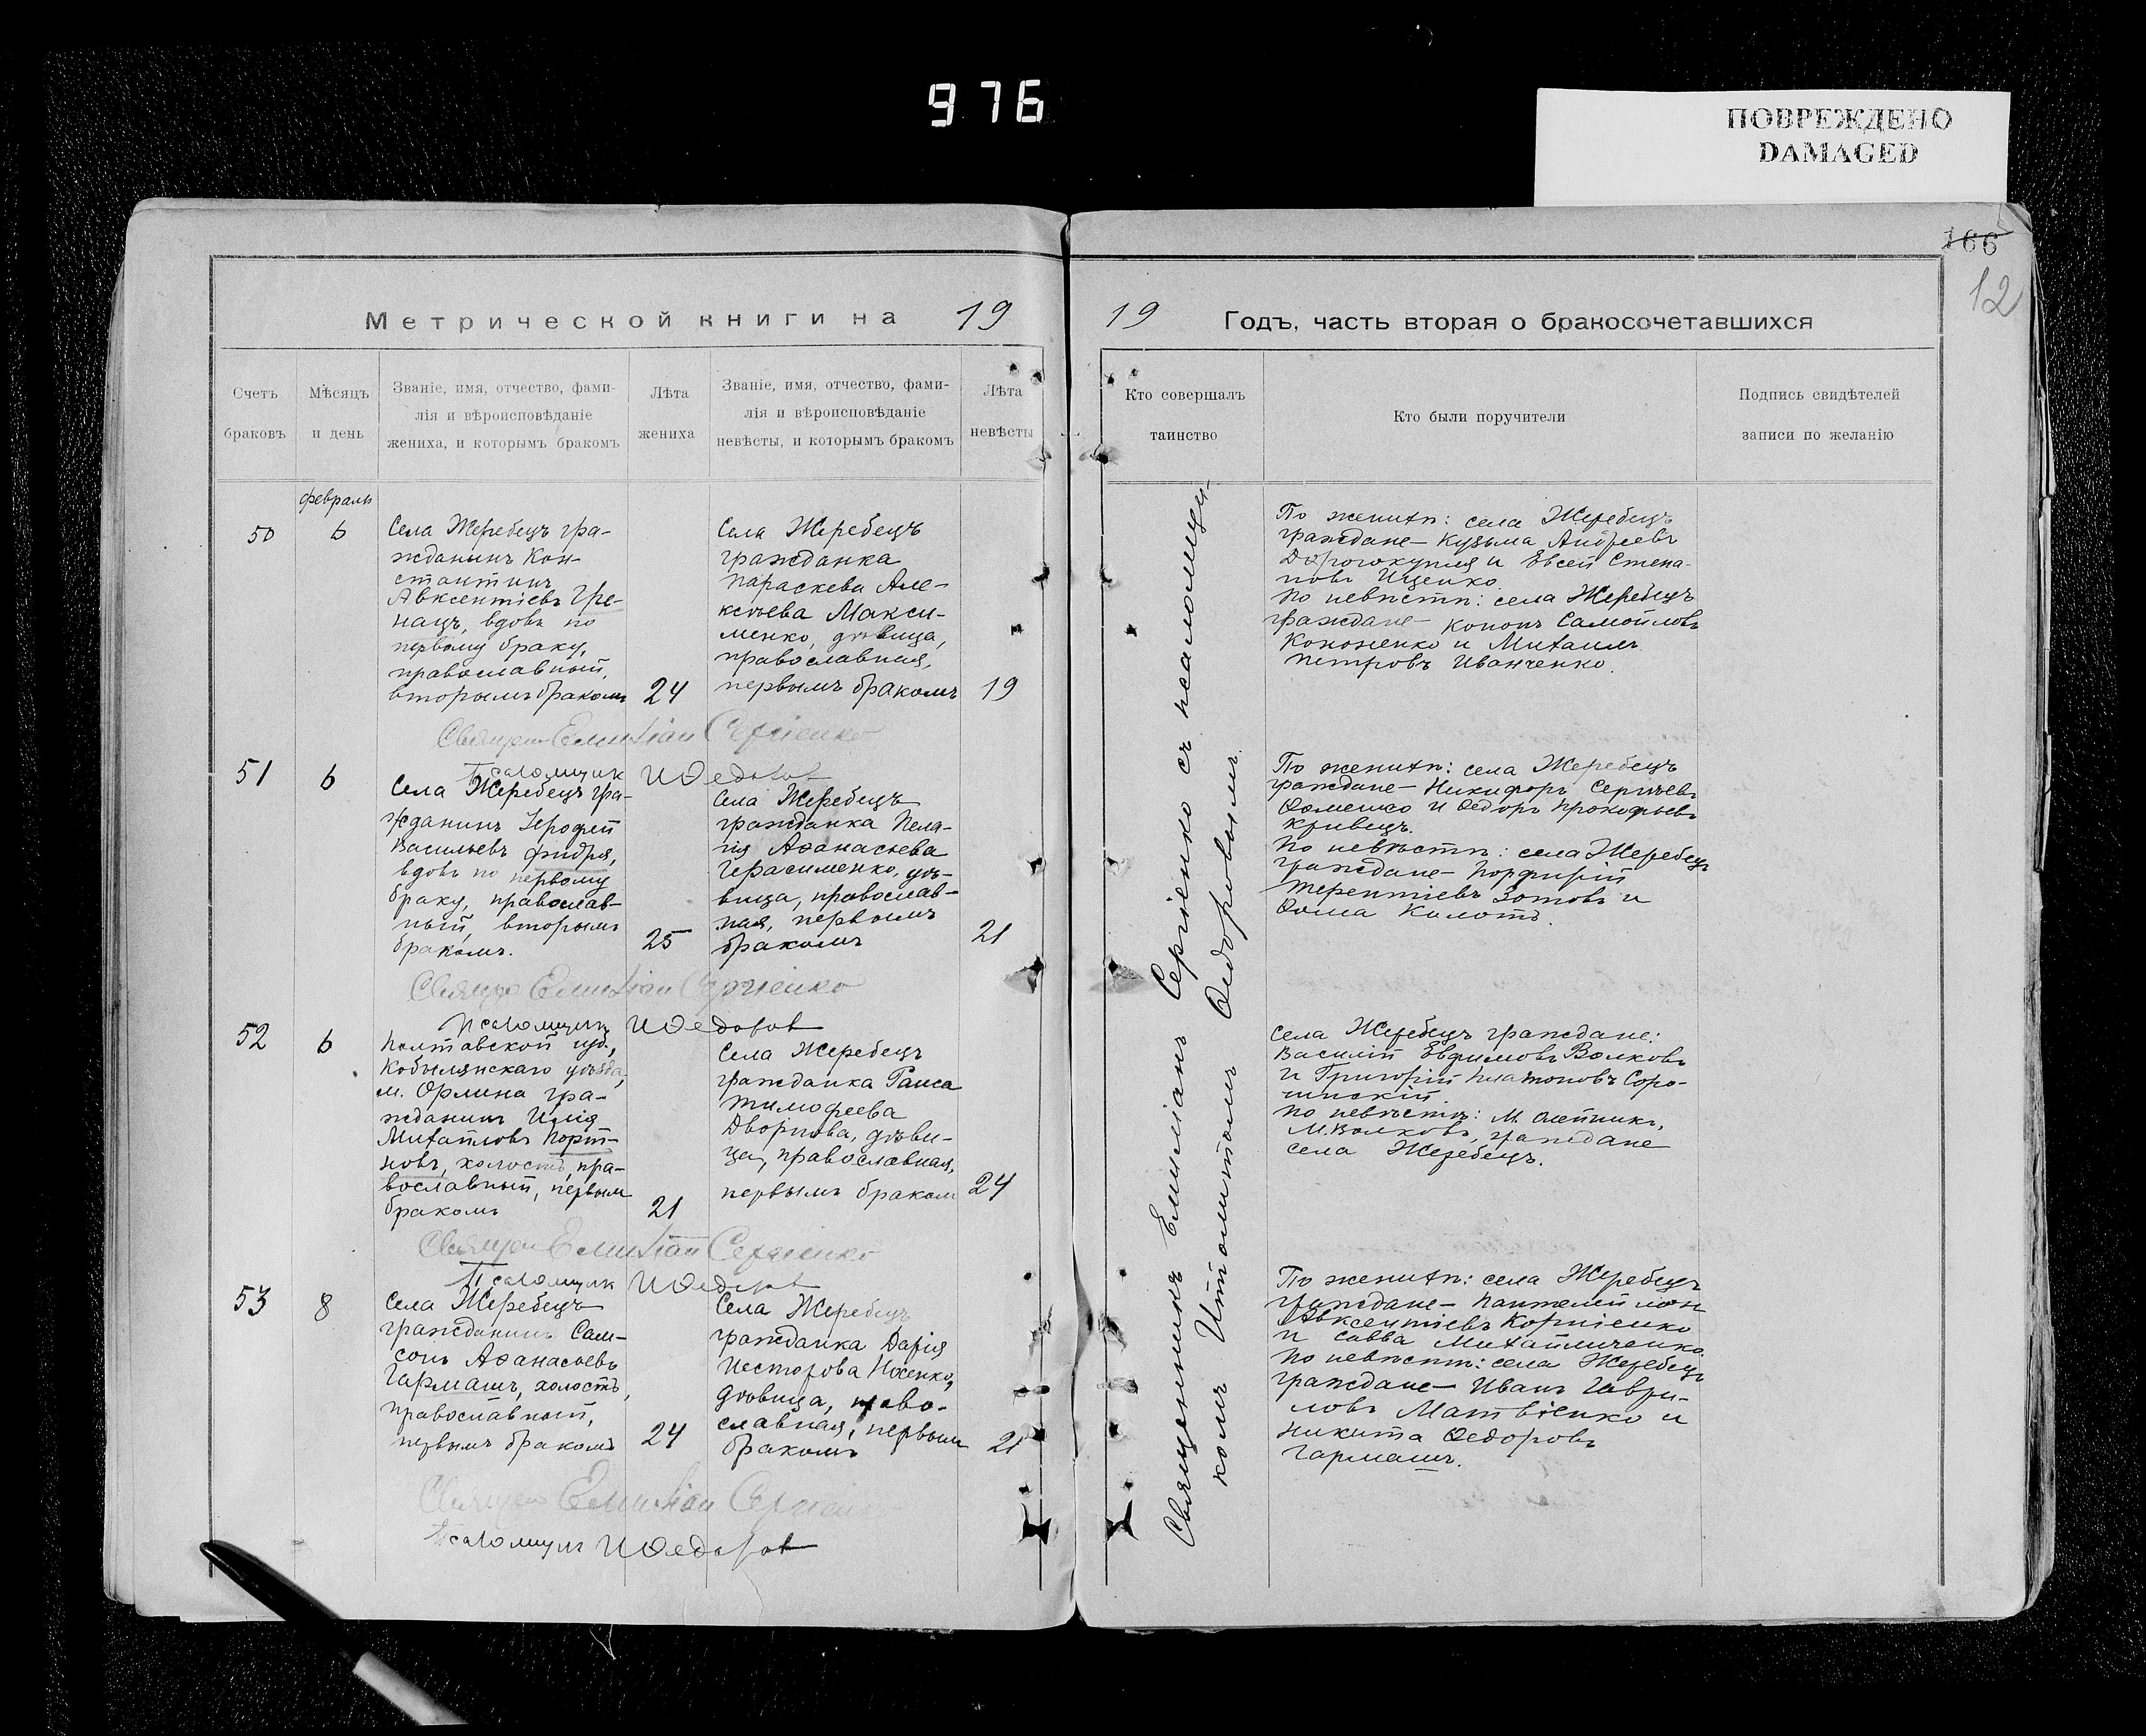 976
ПОВРЕЖДЕНО
DAMAGED
166
12
Метрической книги на 19
19 Годъ, часть вторая о бракосочетавшихся
Счетъ
браковъ
Мѣсяцъ
и день
Званіе, имя, отчество, фами-
лія и вѣроисповѣданіе
жениха, и которымъ бракомъ
Лѣта
жениха
Званіе, имя, отчество, фами-
лія и вѣроисповѣданіе
невѣсты, и которымъ бракомъ
Лѣта
невѣсты
Кто совершалъ
таинство
Кто были поручители
Подпись свидѣтелей
записи по желанію
февраль
50
6
Села Жеребецъ гра-
жданинъ Кон-
стантинъ
Авксентіевъ Гре-
нацъ, вдовъ по
первому браку,
православный,
вторымъ бракомъ
24
Села Жеребецъ
гражданка
Параскева Але-
ксѣева Макси-
менко, дѣвица,
православная,
первымъ бракомъ
19
По женихѣ: села Жеребецъ
граждане – Кузьма Андреевъ
Дорогокупля и Евсей Степа-
новъ Ищенко.
По невѣстѣ: села Жеребецъ
граждане – Кононъ Самойловъ
Кононенко и Михаилъ
Петровъ Иванченко.
Священ Емиліан Сергіенко
Псаломщик И Ѳедоров
51
6
Села Жеребецъ гра-
жданинъ Іерофей
Васильевъ Фидря,
вдовъ по первому
браку, православ-
ный, вторымъ
бракомъ.
25
Села Жеребецъ
гражданка Пела-
гія Аѳанасьева
Герасименко, дѣ-
вица, православ-
ная, первымъ
бракомъ
21
По женихѣ: села Жеребецъ
граждане – Никифоръ Сергѣевъ
Ѳоменко и Ѳедоръ Прокофьевъ
Кривецъ.
По невѣстѣ: села Жеребецъ
граждане – Порфирій
Терентіевъ Зотовъ и
Ѳома Колотъ.
Священ Емиліан Сергіенко
Псаломщик И Ѳедоров
52
6
Полтавской губ.,
Кобылянскаго уѣзда,
м. Орлина гра-
жданинъ Илія
Михайловъ Порт-
новъ, холостъ, пра-
вославный, первым
бракомъ
21
Села Жеребецъ
гражданка Раиса
Тимофеева
Дворнова, дѣви-
ца, православная,
первымъ браком
24
Села Жеребецъ граждане:
Василій Евфимовъ Волковъ
и Григорій Платоновъ Соро-
чинскій.
По невѣстѣ: М. Олейникъ,
М. Волковъ, граждане
села Жеребецъ.
Священ Емиліан Сергіенко
Псаломщик И Ѳедоров
53
8
Села Жеребецъ
гражданинъ Сам-
сонъ Аѳанасьевъ
Гармашъ, холостъ,
православный,
первымъ бракомъ
24
Села Жеребецъ
гражданка Дарія
Несторова Носенко,
дѣвица, право-
славная, первым
бракомъ
21
По женихѣ: села Жеребецъ
граждане – Пантелеймон
Авксентіевъ Корніенко
и Савва Михайличенко.
По невѣстѣ: села Жеребецъ
граждане – Иванъ Гаври-
ловъ Матвіенко и
Никита Ѳедоровъ
Гармашъ.
Священ Емиліан Сергіенко
Псаломщик И Ѳедоров
Священникъ Емиліанъ Сергіенко съ псаломщи-
комъ Ипполитомъ Ѳедоровымъ.